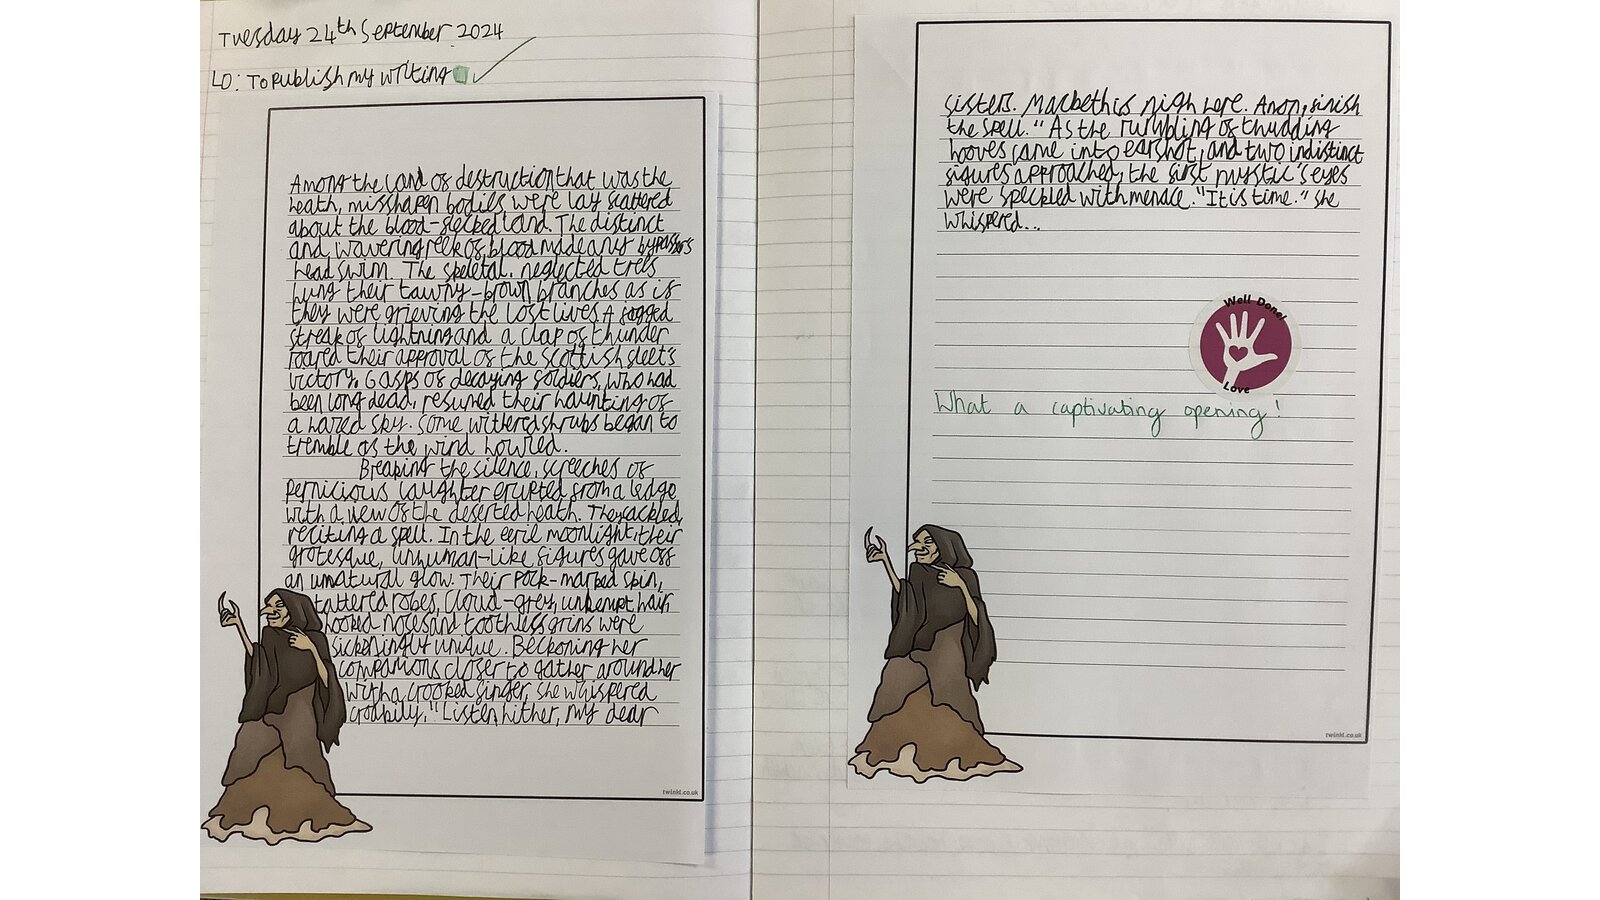 Tuesday 24th September 2024
LO: To publish my writing
Among the land of destruction that was the
heath, misshapen bodies were lay scattered
about the blood-flecked land. The distinct
and wavering reek of blood made any bypassers
head swim. The skeletal, neglected trees
hung their tawny-brown branches as if
they were grieving the lost lives. A jagged
streak of lightning and a clap of thunder
roared their approval of the Scottish fleet's
victory. Gasps of decaying soldiers, who had
been long dead, resumed their haunting of
a hared sky. Some withered shrubs began to
tremble as the wind howled.
Breaking the silence, screeches of
pernicious laughter erupted from a ledge
with a view of the deserted heath. They cackled,
reciting a spell. In the eerie moonlight, their
grotesque, unhuman-like figures gave off
an unnatural glow. Their pock-marked skin,
tattered robes, cloud-grey, unkempt hair,
hooked noses and toothless grins were
sickeningly unique. Beckoning her
companions closer to gather around her
with a crooked finger, she whispered
croakily, "Listen hither, my dear
twinkl.co.uk
sisters. Macbeth is nigh here. Anon, finish
the spell." As the rumbling of thudding
hooves came into earshot, and two indistinct
figures approached, the first mystic's eyes
were speckled with menace. "It is time." she
whispered...
Well Done!
Love
What a captivating opening!
twinkl.co.uk